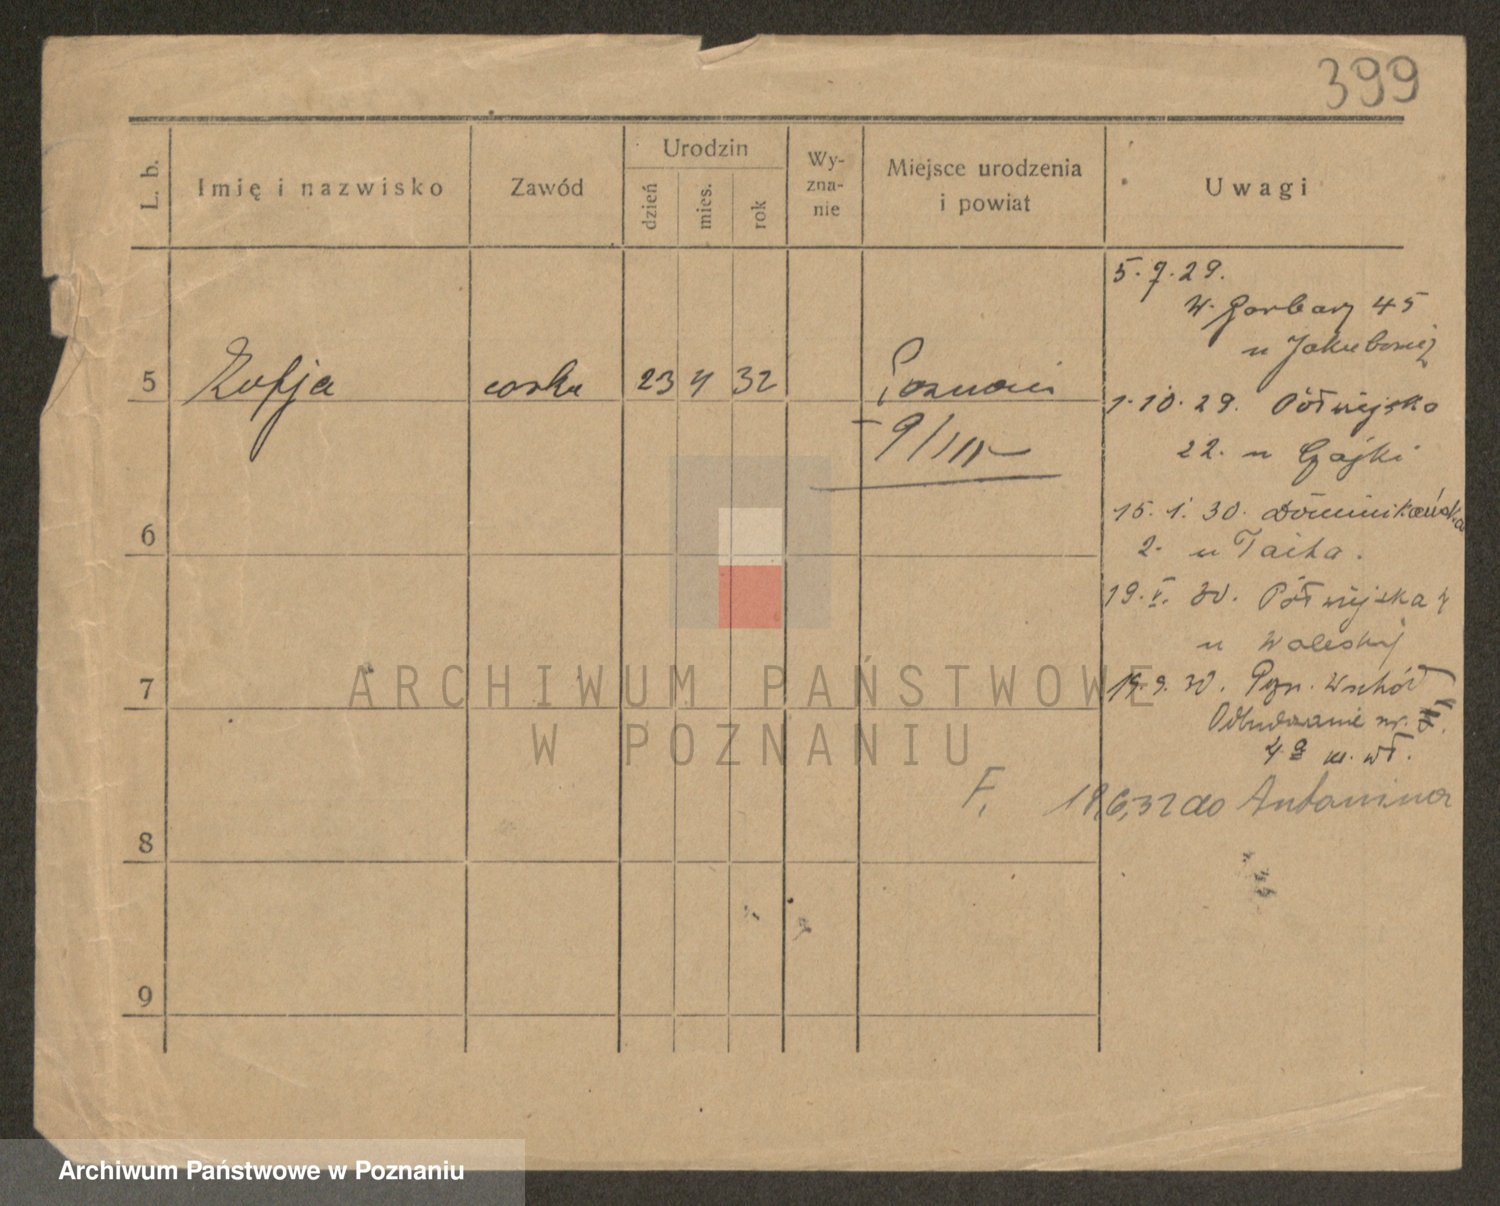 399
L. b.
Imię i nazwisko
Zawód
Urodzin
dzień
mies.
rok
Wy-
zna-
nie
Miejsce urodzenia
i powiat
Uwagi
5 Zofja córka 23 4 32 Poznań
9/III
6
7
8
9
5. 7. 29.
W. Garbary 45
u
1. 10. 29. Półwiejska
22. u Gajki
15. 1. 30. Dominikańska
2. u Taita.
19. V. 30. Półwiejska
u
19. 9. 30. Pozn. Wschód
nr.
m. wł.
F. 18,6,32 do Antoninor
ARCHIWUM PAŃSTWOWE
W POZNANIU
Archiwum Państwowe w Poznaniu